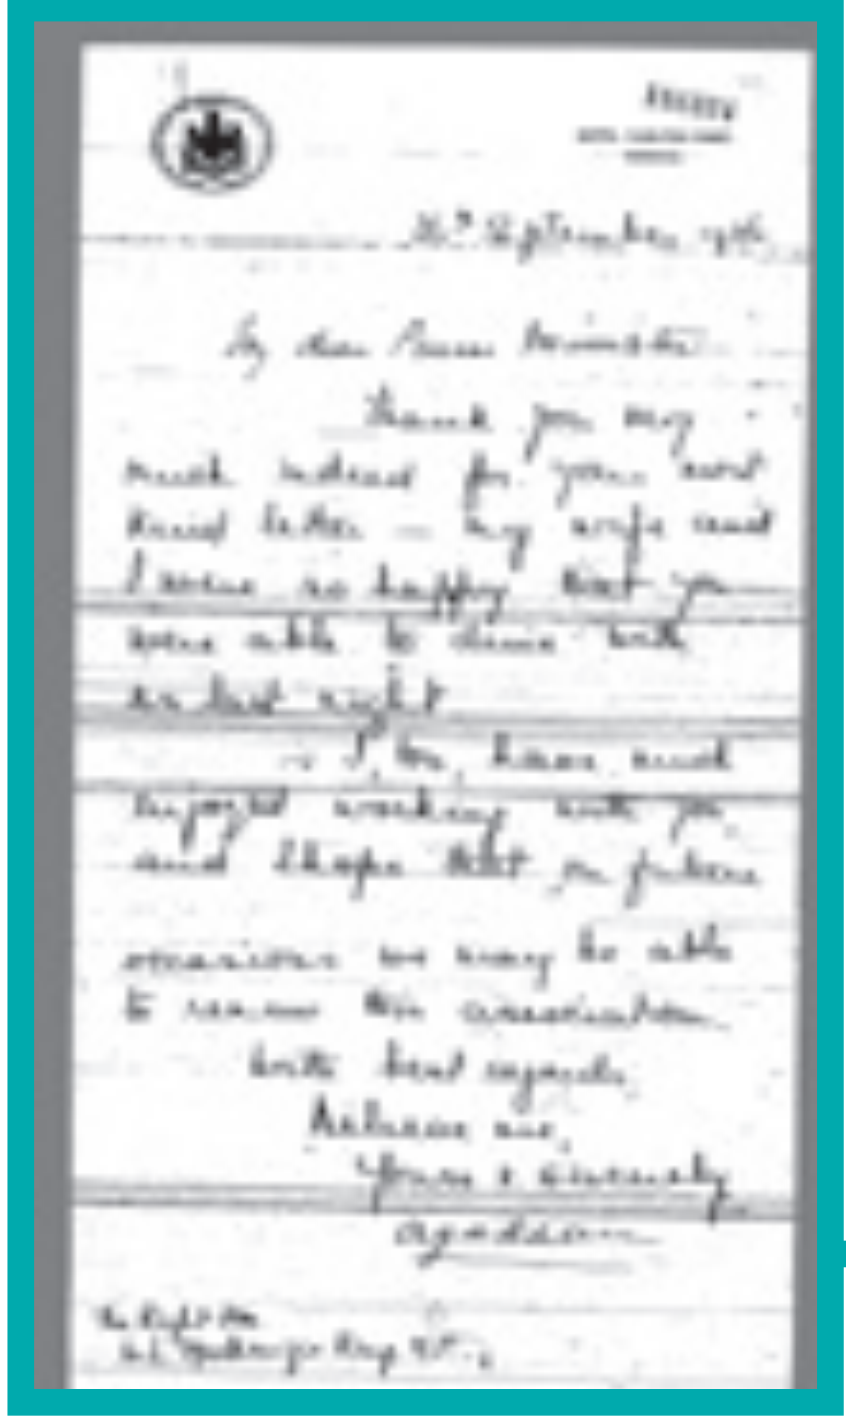 September
My dear Prime Minister
Thank you very
much indeed for your most
kind letter – my wife and
I were so happy that you
were able to dine with
us last night
I, too, have much
enjoyed working with you
and I hope that on future
occasions we may be able
to renew this association.
With best regards,
Believe me,
Yours sincerely
The Right Hon
W. L. Mackenzie King